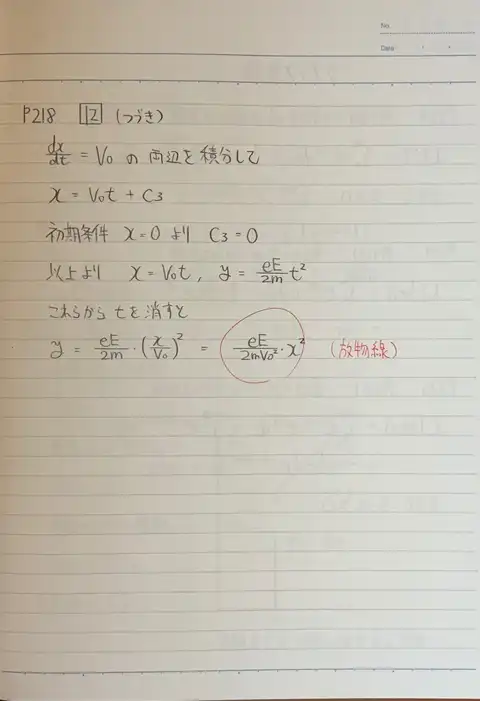 No.
Date
P218 12 (つづき)
dx/dt = V₀ の両辺を積分して
x = V₀t + C₃
初期条件 x=0 より C₃=0
以上より x = V₀t, y = eE/2m t²
これらから t を消すと
y = eE/2m ・ (x/V₀)² = eE/2mV₀² ・ x² (放物線)